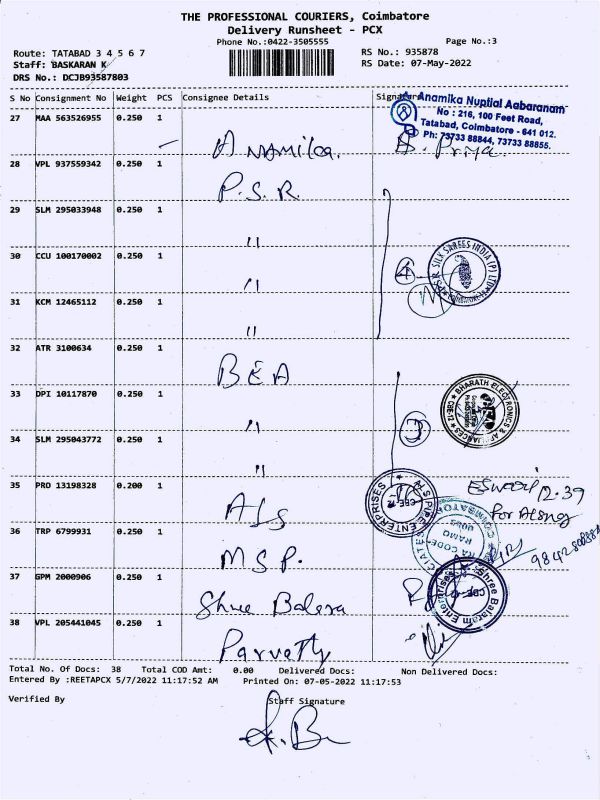 THE PROFESSIONAL COURIERS, Coimbatore
Delivery Runsheet - PCX
Phone No.:0422-3505555
Page No.:3
Route: TATABAD 3 4 5 6 7
RS No.: 935878
Staff: BASKARAN K
RS Date: 07-May-2022
DRS No.: DCJB93587803
S No Consignment No Weight PCS Consignee Details Signature
Anamika Nuptial Aabaranam
No : 216, 100 Feet Road,
Tatabad, Coimbatore - 641 012.
Ph: 73733 88844, 73733 88855.
27 MAA 563526955 0.250 1
Anamika. Priya.
28 VPL 937559342 0.250 1
P.S.R.
29 SLM 295033948 0.250 1
"
30 CCU 100170002 0.250 1
" 4
P.S.R. SILK SAREES INDIA (P) LTD
31 KCM 12465112 0.250 1
"
32 ATR 3100634 0.250 1
BEA
33 DPI 10117870 0.250 1
" 3
BHARATH ELECTRONICS & APPLIANCES CBE-12
34 SLM 295043772 0.250 1
"
35 PRD 13198328 0.200 1
Als
ALS PIPE ENTERPRISES CBE-12
Eswari 12.39
for
36 TRP 6799931 0.250 1
MSP.
COIMBATORE
RAMU
37 GPM 2000906 0.250 1
Shree Balara
Shree Balaram Enterprises CBE-12
38 VPL 205441045 0.250 1
Parvathy
Total No. Of Docs: 38 Total COD Amt: 0.00 Delivered Docs: Non Delivered Docs:
Entered By :REETAPCX 5/7/2022 11:17:52 AM Printed On: 07-05-2022 11:17:53
Verified By Staff Signature